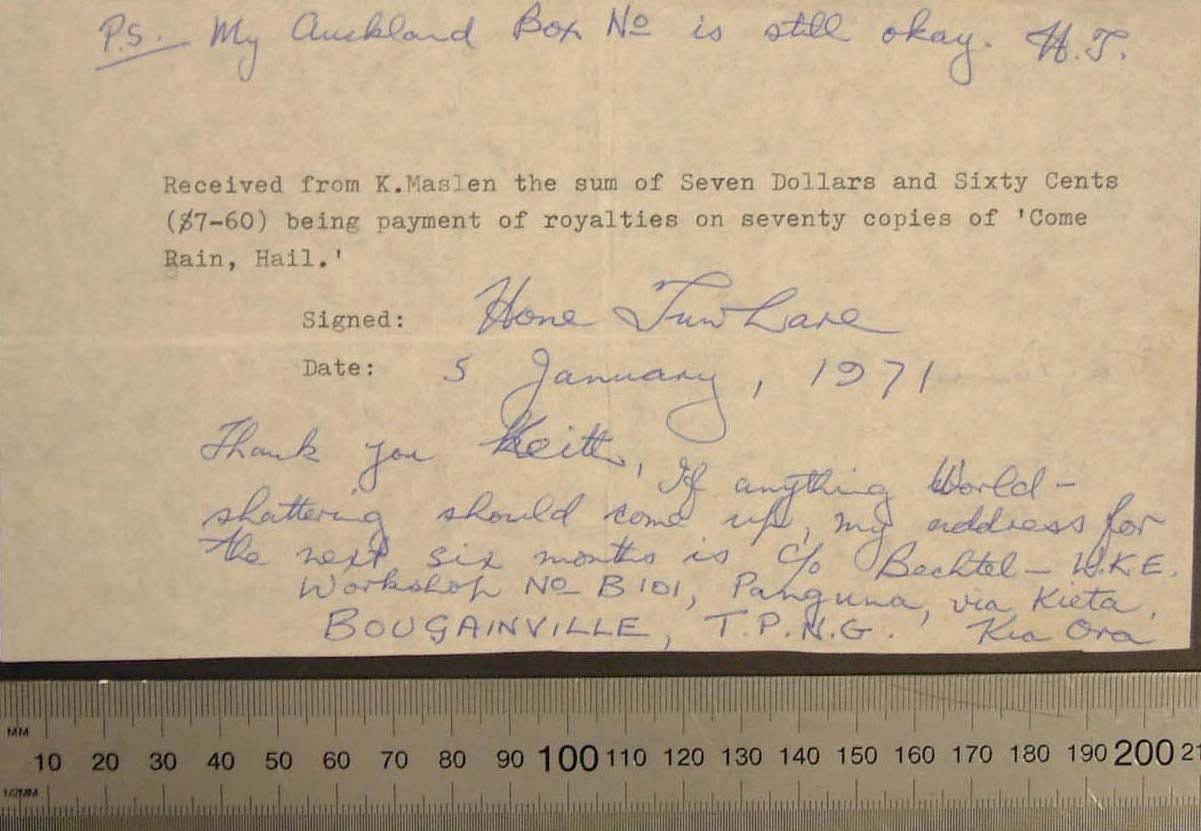 P.S. My Auckland Box No is still okay. H.T.
Received from K.Maslen the sum of Seven Dollars and Sixty Cents
($7-60) being payment of royalties on seventy copies of 'Come
Rain, Hail.'
Signed: Hone Tuwhare
Date: 5 January, 1971
Thank you Keith, If anything World-
shattering should come up, my address for
the next six months is c/o Bechtel-W.K.E.
Workshop No B101, Panguna, via Kieta,
BOUGAINVILLE, T.P.N.G. Kia Ora
MM
10 20 30 40 50 60 70 80 90 100 110 120 130 140 150 160 170 180 190 200 21
1/2MM